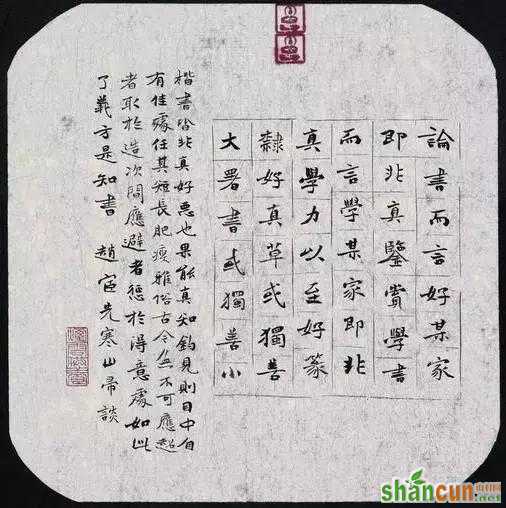 論書而言好某家
即非真鑒賞學書
而言學某家即非
真學力以至好篆
隸好真草或獨善
大署書或獨善小
楷書皆非真好惡也果能真知鈞見則目中自
有佳處任其短長肥瘦雅俗古今無不可應趨
者取於造次間應避者懲於得意處如此
了義方是知書 趙宧光寒山帚談
shancun